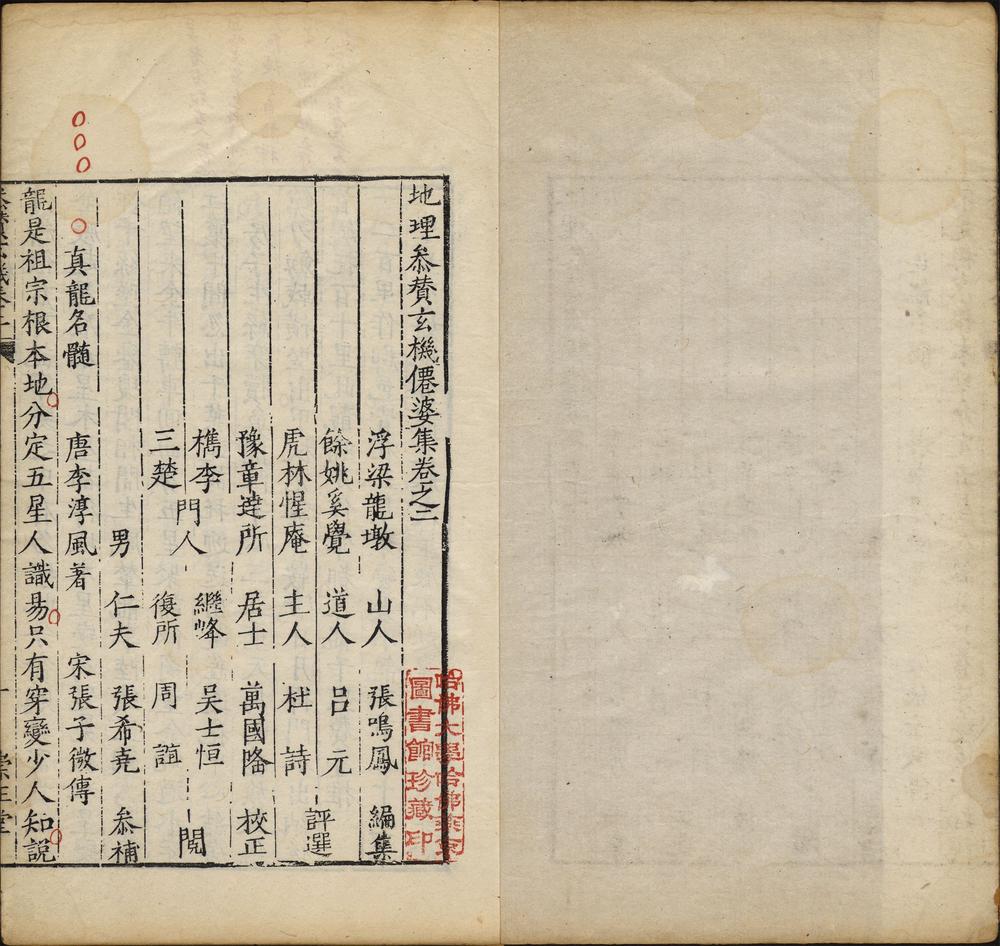 地理叅賛玄機僊婆集卷之二
浮梁龍墩 山人 張鳴鳳 編集
餘姚奚覺 道人 呂元
虎林惺庵 主人 杜詩 評選
豫章逹所 居士 萬國隆 校正
檇李 門人 繼峰 吳士恒
三楚 復所 周誼 閱
男 仁夫 張希堯 叅補
真龍名髓 唐李淳風著 宋張子微傳
龍是祖宗根本地分定五星人識易只有穿變少人知說
哈佛大學哈佛燕京
圖書館珍藏印